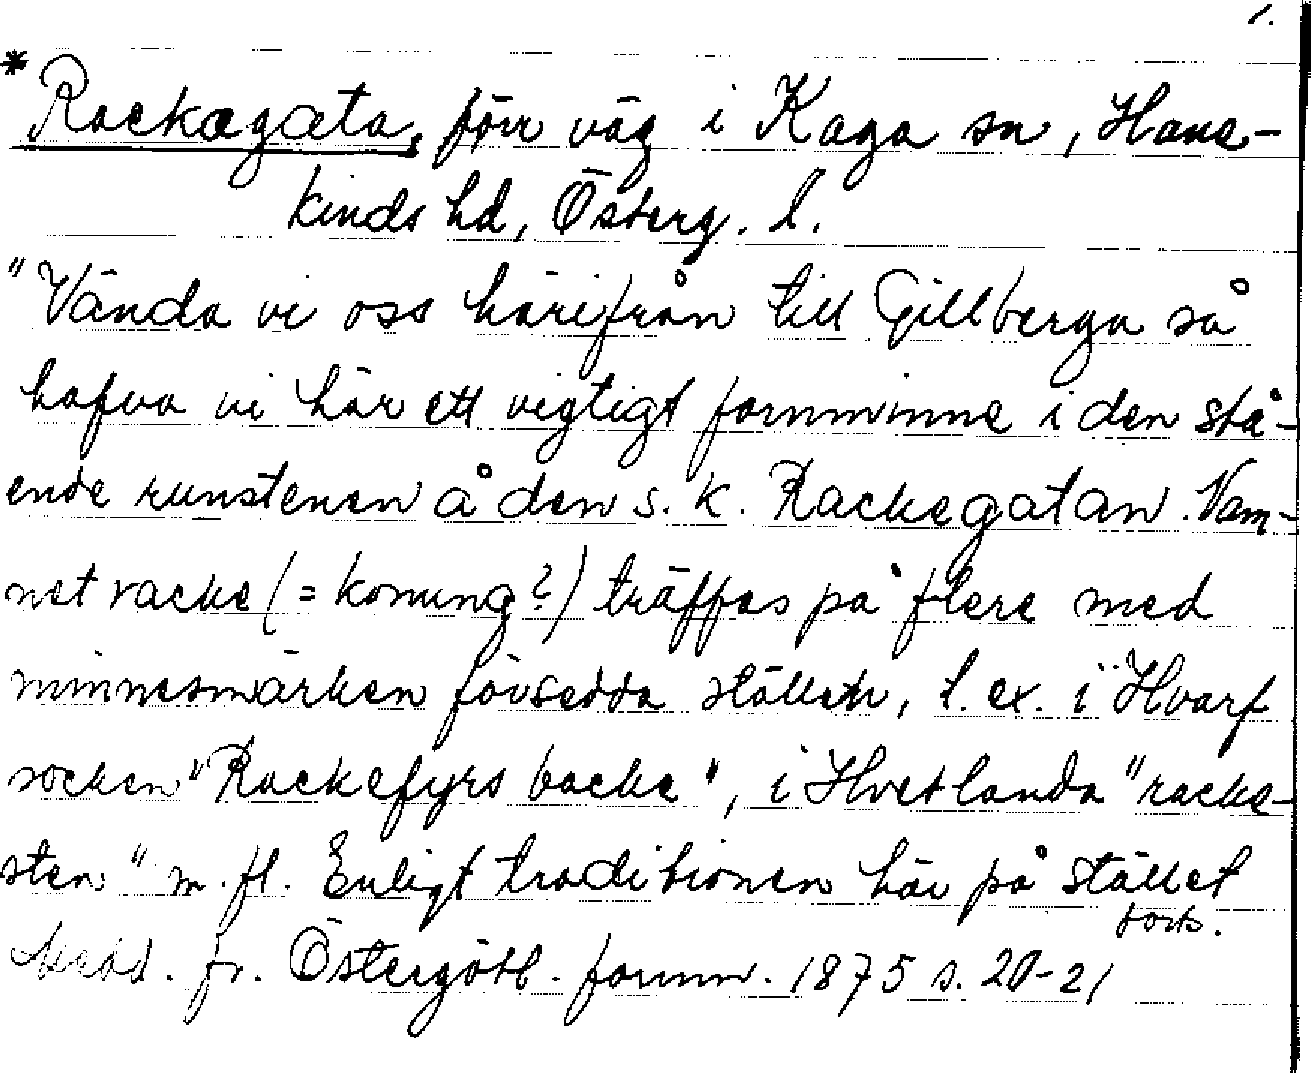 1.
* Rackagata, förr väg i Kaga sn, Hane-
kinds hd, Österg. l.
"Vända vi oss härifrån till Gillberga så
hafva vi här ett vigtigt fornminne i den stå-
ende runstenen å den s. k. Rackegatan. Nam-
net racke (= konung?) träffas på flere med
minnesmärken försedda ställen, t. ex. i Hvarf
socken "Rackefyrs backe", i Hvetlanda "racke-
sten" m. fl. Enligt traditionen här på stället
forts.
Medd. fr. Östergötl. fornm. 1875 s. 20-21